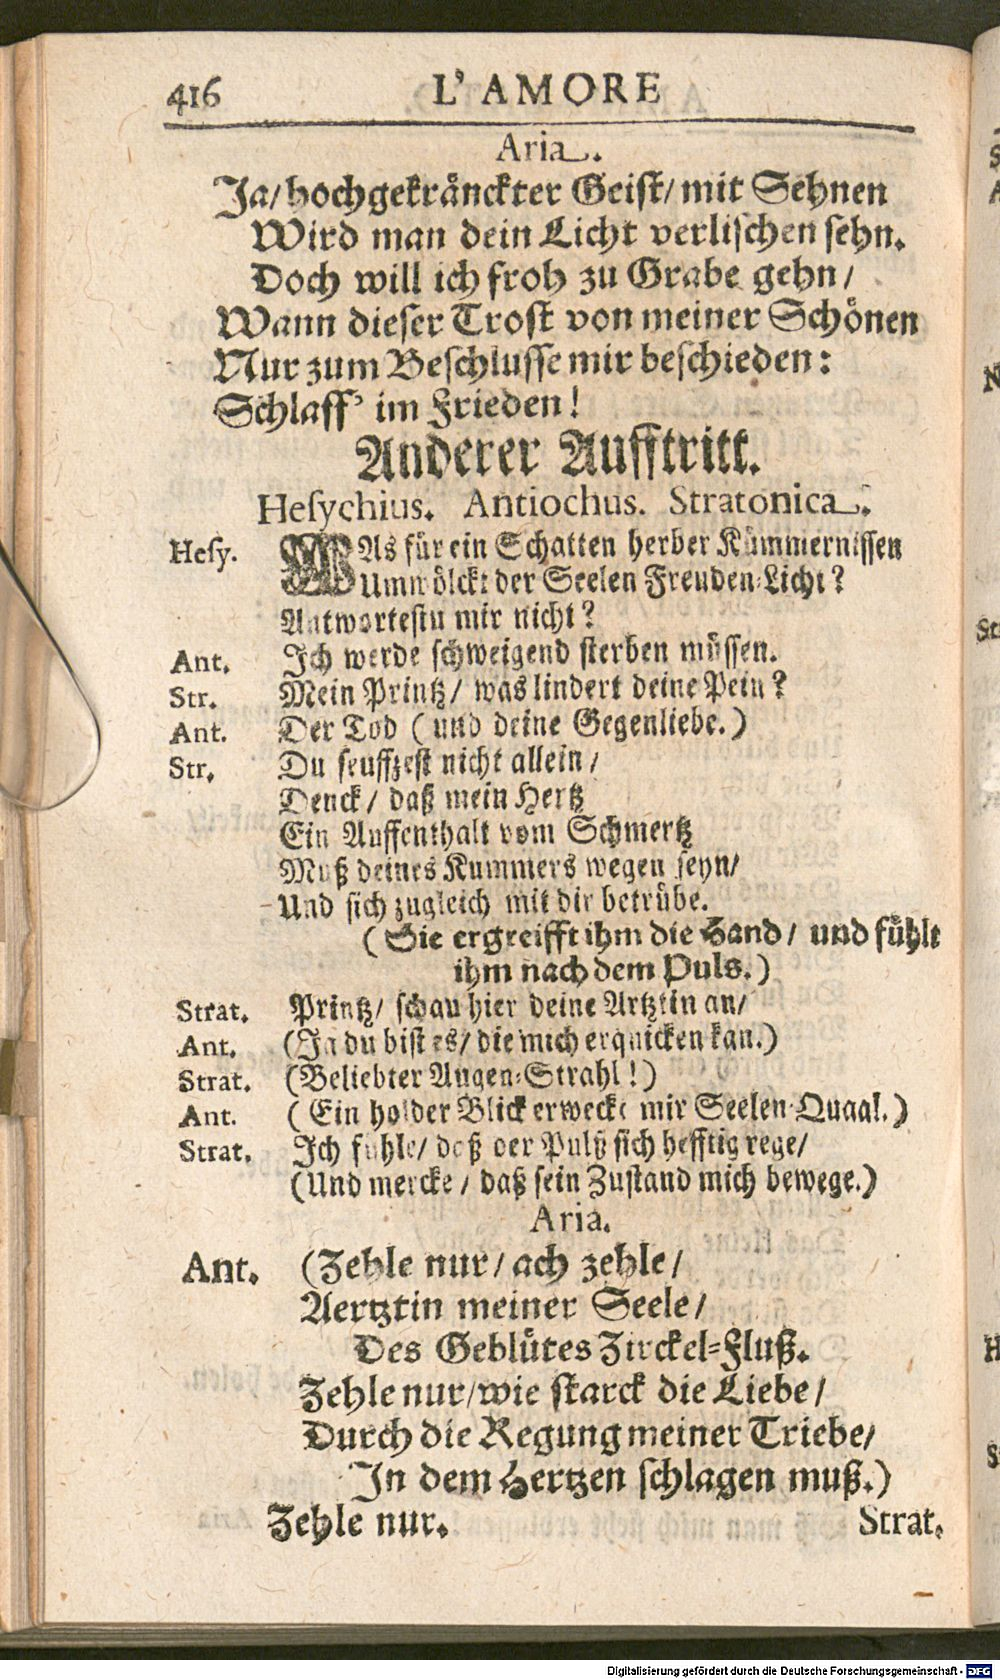 416 L' AMORE
Aria.
Ja/ hochgekränckter Geist/ mit Sehnen
Wird man dein Licht verlischen sehn.
Doch will ich froh zu Grabe gehn/
Wann dieser Trost von meiner Schönen
Nur zum Beschlusse mir beschieden:
Schlaff' im Frieden!
Anderer Aufftritt.
Hesychius. Antiochus. Stratonica.
Hesy. WAs für ein Schatten herber Kümmernissen
Umwölckt der Seelen Freuden-Licht?
Antwortestu mir nicht?
Ant. Ich werde schweigend sterben müssen.
Str. Mein Printz/ was lindert deine Pein?
Ant. Der Tod (und deine Gegenliebe.)
Str. Du seuffzest nicht allein/
Denck/ daß mein Hertz
Ein Auffenthalt vom Schmertz
Muß deines Kummers wegen seyn/
Und sich zugleich mit dir betrübe.
(Sie ergreifft ihm die Hand/ und fühlt
ihm nach dem Puls.)
Strat. Printz/ schau hier deine Artztin an/
Ant. (Ja du bist es/ die mich erquicken kan.)
Strat. (Beliebter Augen-Strahl!)
Ant. (Ein holder Blick erweckt mir Seelen-Quaal.)
Strat. Ich fühle/ daß der Pulß sich hefftig rege/
(Und mercke/ daß sein Zustand mich bewege.)
Aria.
Ant. (Zehle nur/ ach zehle/
Aertztin meiner Seele/
Des Geblütes Zirckel-Fluß.
Zehle nur/ wie starck die Liebe/
Durch die Regung meiner Triebe/
In dem Hertzen schlagen muß.)
Zehle nur. Strat.
Digitalisierung gefördert durch die Deutsche Forschungsgemeinschaft - DFG